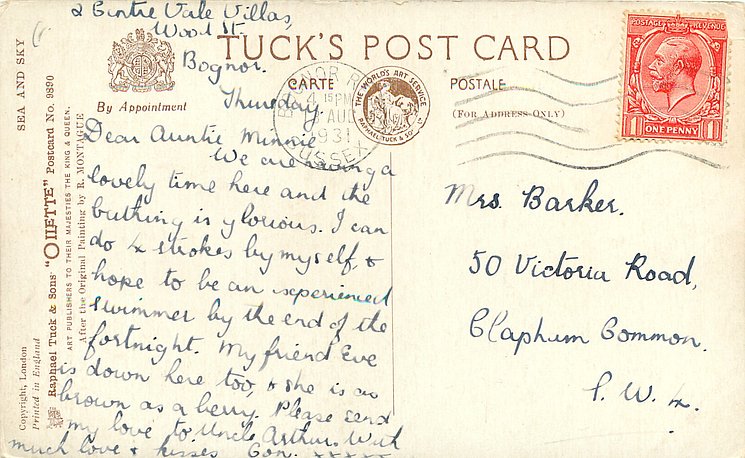 2 Centre Vale Villas,
Wood St.
Bognor.
Thursday
Dear Auntie Minnie
We are having a
lovely time here and the
bathing is glorious. I can
do 4 strokes by myself, &
hope to be an experienced
swimmer by the end of the
fortnight. My friend Eve
is down here too, & she is as
brown as a berry. Please send
my love to Uncle Arthur. With
much love & kisses Con. xxxxx
TUCK'S POST CARD
CARTE POSTALE
(FOR ADDRESS ONLY)
By Appointment
THE WORLD'S ART SERVICE
RAPHAEL TUCK & SONS LTD
BOGNOR R
4 15 PM
AUG
1931
SUSSEX
POSTAGE REVENUE
1 ONE PENNY 1
Mrs. Barker.
50 Victoria Road,
Clapham Common.
S.W.4.
SEA AND SKY
Copyright, London
Printed in England
Raphael Tuck & Sons' "OILETTE" Postcard No. 9890
ART PUBLISHERS TO THEIR MAJESTIES THE KING & QUEEN.
After the Original Painting by R. MONTAGUE